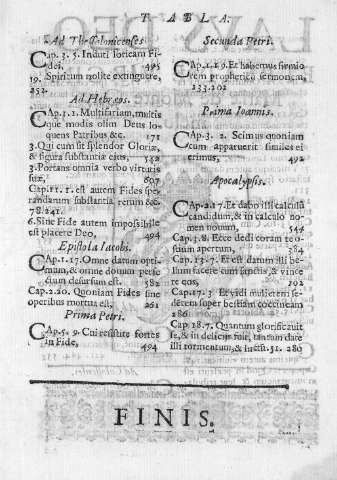 TABLA.
Ad Thesalonicenses.
Cap. 5. 5. Induti loricam Fi-
dei. 495
19. Spiritum nolite extinguere,
252.
Ad Hebræos.
Cap. 1. 1. Multifariam, multis
que modis olim Deus lo-
quens Patribus &c. 171
3. Qui cum sit splendor Gloriæ,
& figura substantiæ eius, 542
3. Portans omnia verbo virtutis
suæ, 607
Cap. 11. 1. est autem Fides spe-
randarum substantia rerum &c.
78. 241.
6. Sine Fide autem impossibile
est placere Deo, 494
Epistola Iacobi.
Cap. 1. 17. Omne datum opti-
mum, & omne donum perfe-
ctum desursum est. 582
Cap. 2. 20. Quoniam Fides sine
operibus mortua est, 261
Prima Petri.
Cap. 5. 9. Cui resistite fortes
in Fide, 494
Secunda Petri.
Cap. 1. 19. Et habemus firmio
rem propheticū sermonem,
233. 202
Prima Ioannis.
Cap. 3. 2. Scimus quoniam
cum apparuerit similes ei
erimus, 492
Apocalypsis.
Cap. 2. 17. Et dabo illi calculū
candidum, & in calculo
nomen nouum, 544
Cap. 3. 8. Ecce dedi coram te o-
stium apertum, 584
Cap. 13. 7. Et est datum illi be-
llum facere cum sanctis, & vince
re eos, 102
Cap. 17. 3. Et vidi mulierem se-
dentem super bestiam coccineam
286
Cap. 18. 7. Quantum glorificauit
se, & in delicijs fuit, tantum date
illi tormentum, & luctū. 51. 280
FINIS.